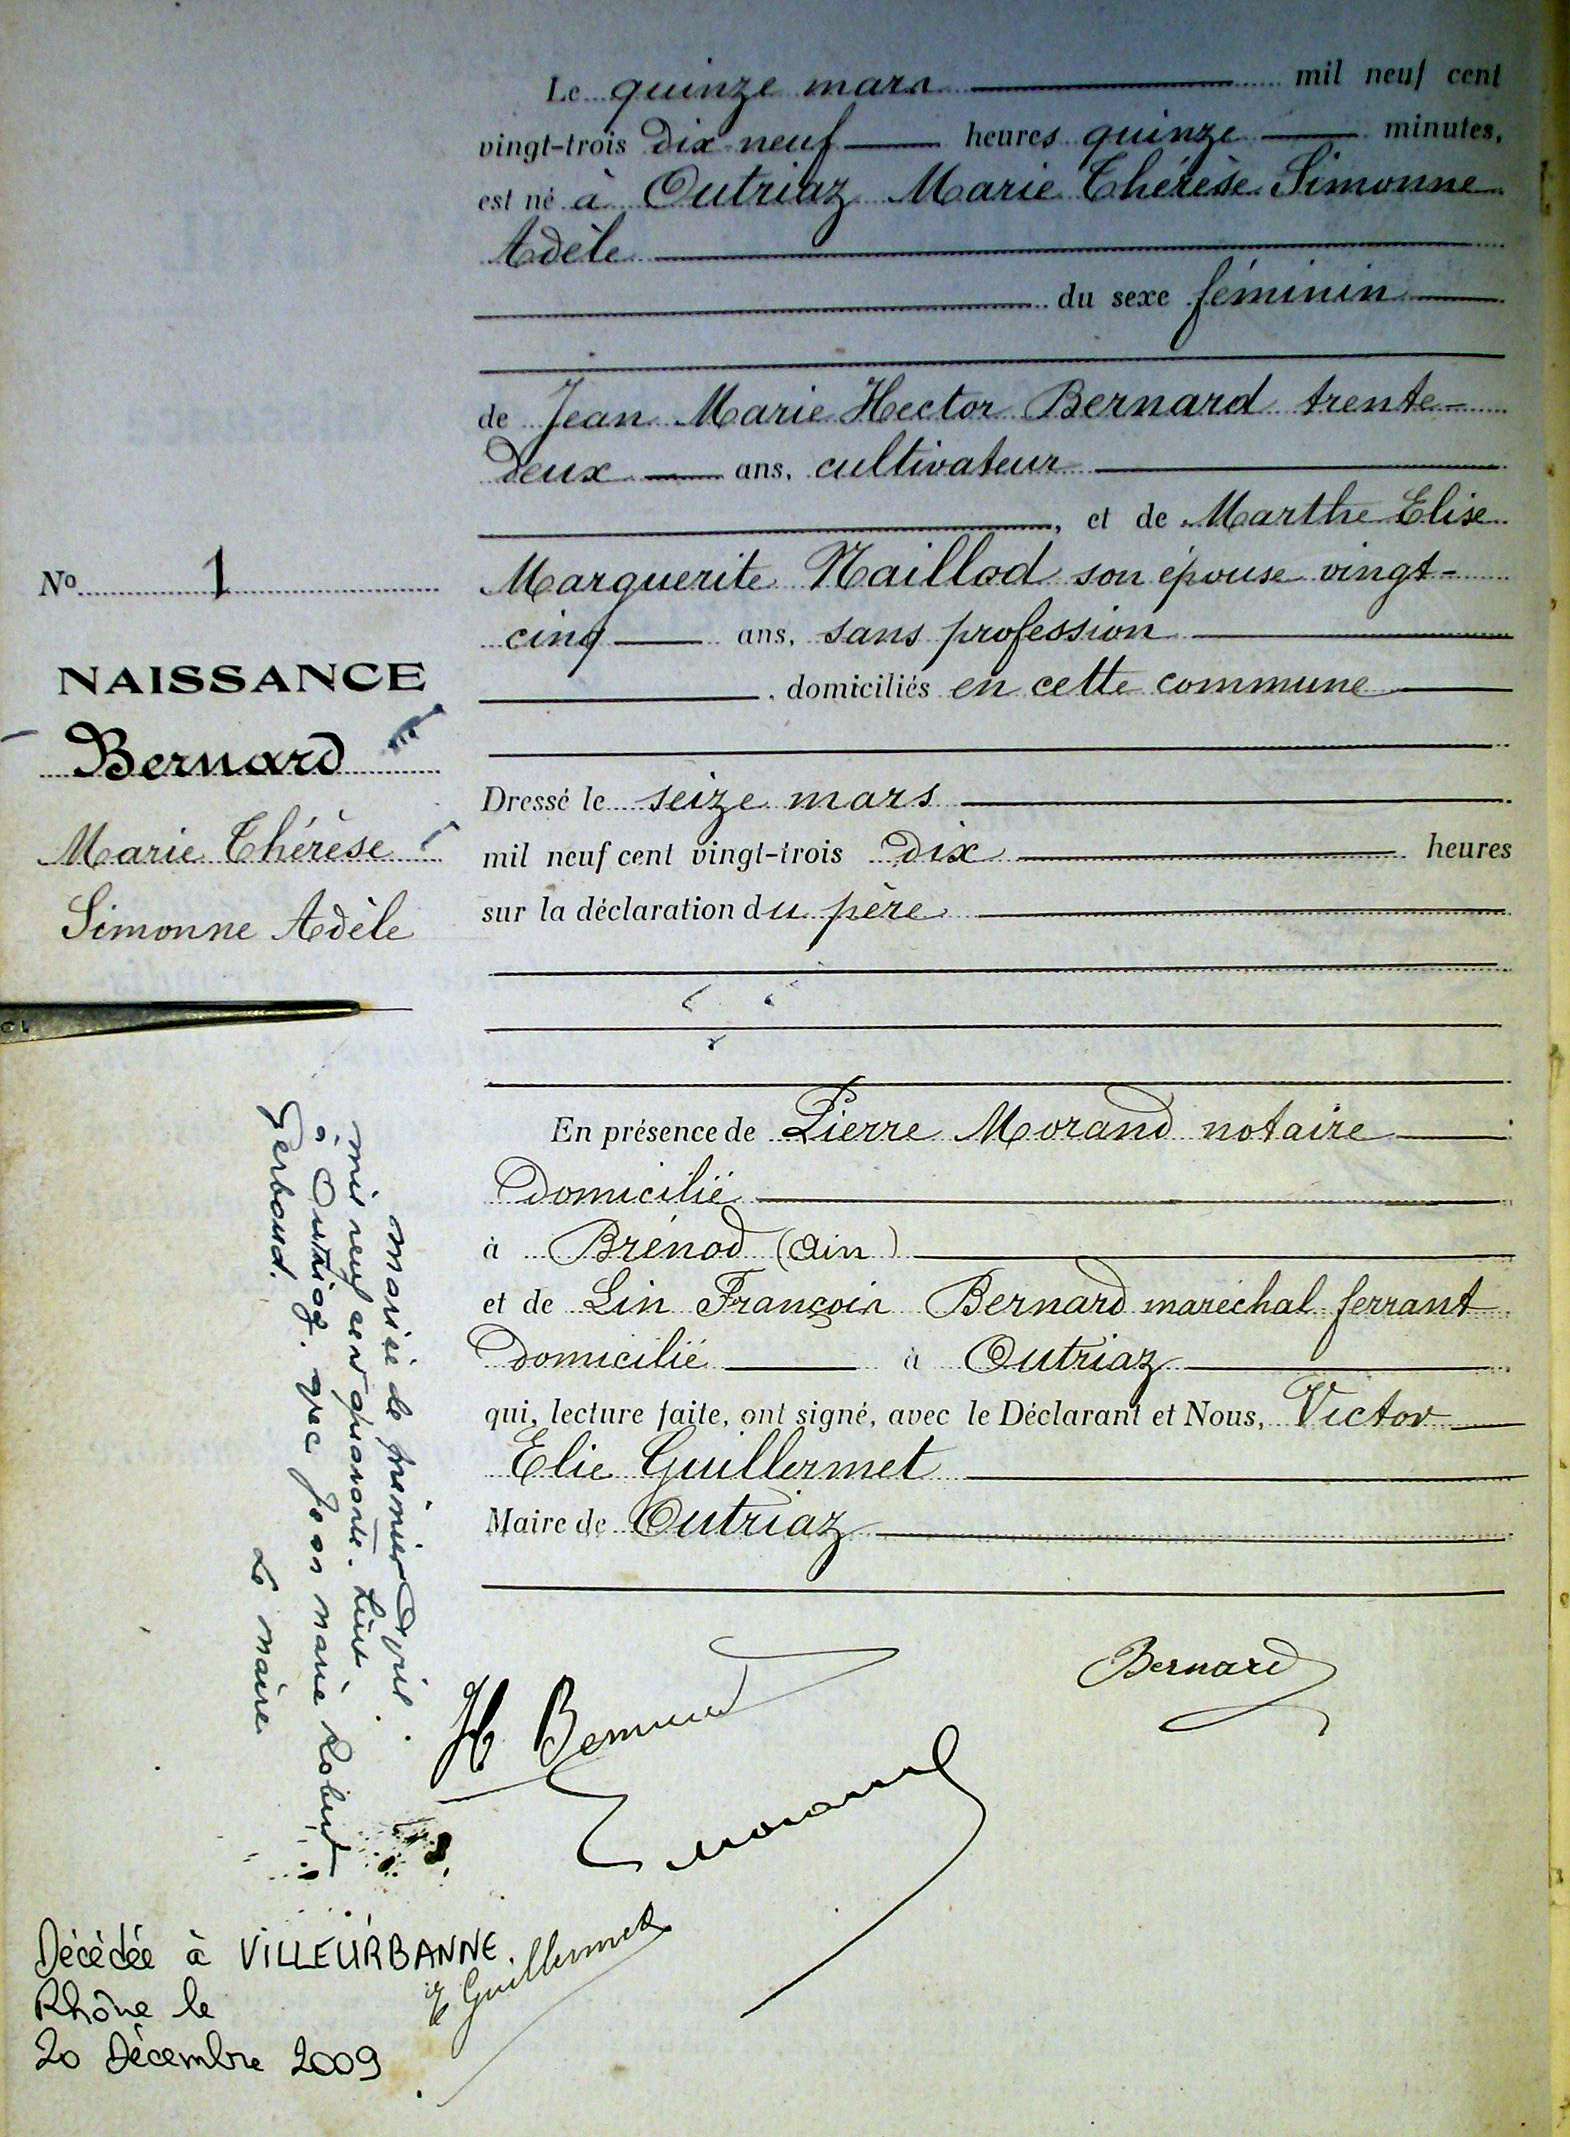 Le quinze mars mil neuf cent
vingt-trois dix neuf heures quinze minutes,
est né à Outriaz Marie Thérèse Simonne
Adèle
du sexe féminin
de Jean Marie Hector Bernard trente-
deux ans, cultivateur
, et de Marthe Elise
Marguerite Maillod son épouse vingt-
cinq ans, sans profession
, domiciliés en cette commune
Dressé le seize mars
mil neuf cent vingt-trois dix heures
sur la déclaration du père
En présence de Pierre Morand notaire
domicilié
à Brénod (Ain)
et de Lin François Bernard maréchal ferrant
domicilié à Outriaz
qui, lecture faite, ont signé, avec le Déclarant et Nous, Victor
Elie Guillermet
Maire de Outriaz
No 1
NAISSANCE
Bernard
Marie Thérèse
Simonne Adèle
Mariée le premier Avril
mil neuf cent quarante. huit
à Outriaz. avec Jean Marie Robert
Gerboud.
Le Maire
H Bernard
Bernard
Morand
E Guillermet
Décédée à VILLEURBANNE
Rhône le
20 Décembre 2009